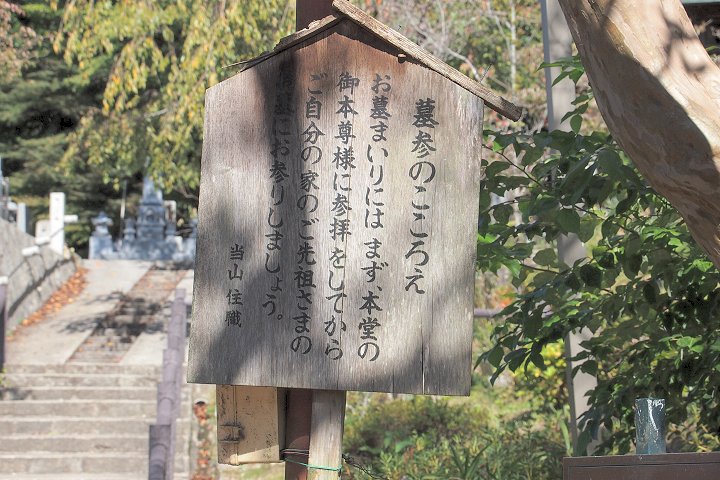 墓参のこころえ
お墓まいりには まず、本堂の
御本尊様に参拝をしてから
ご自分の家のご先祖さまの
お墓にお参りしましょう。
当山 住職